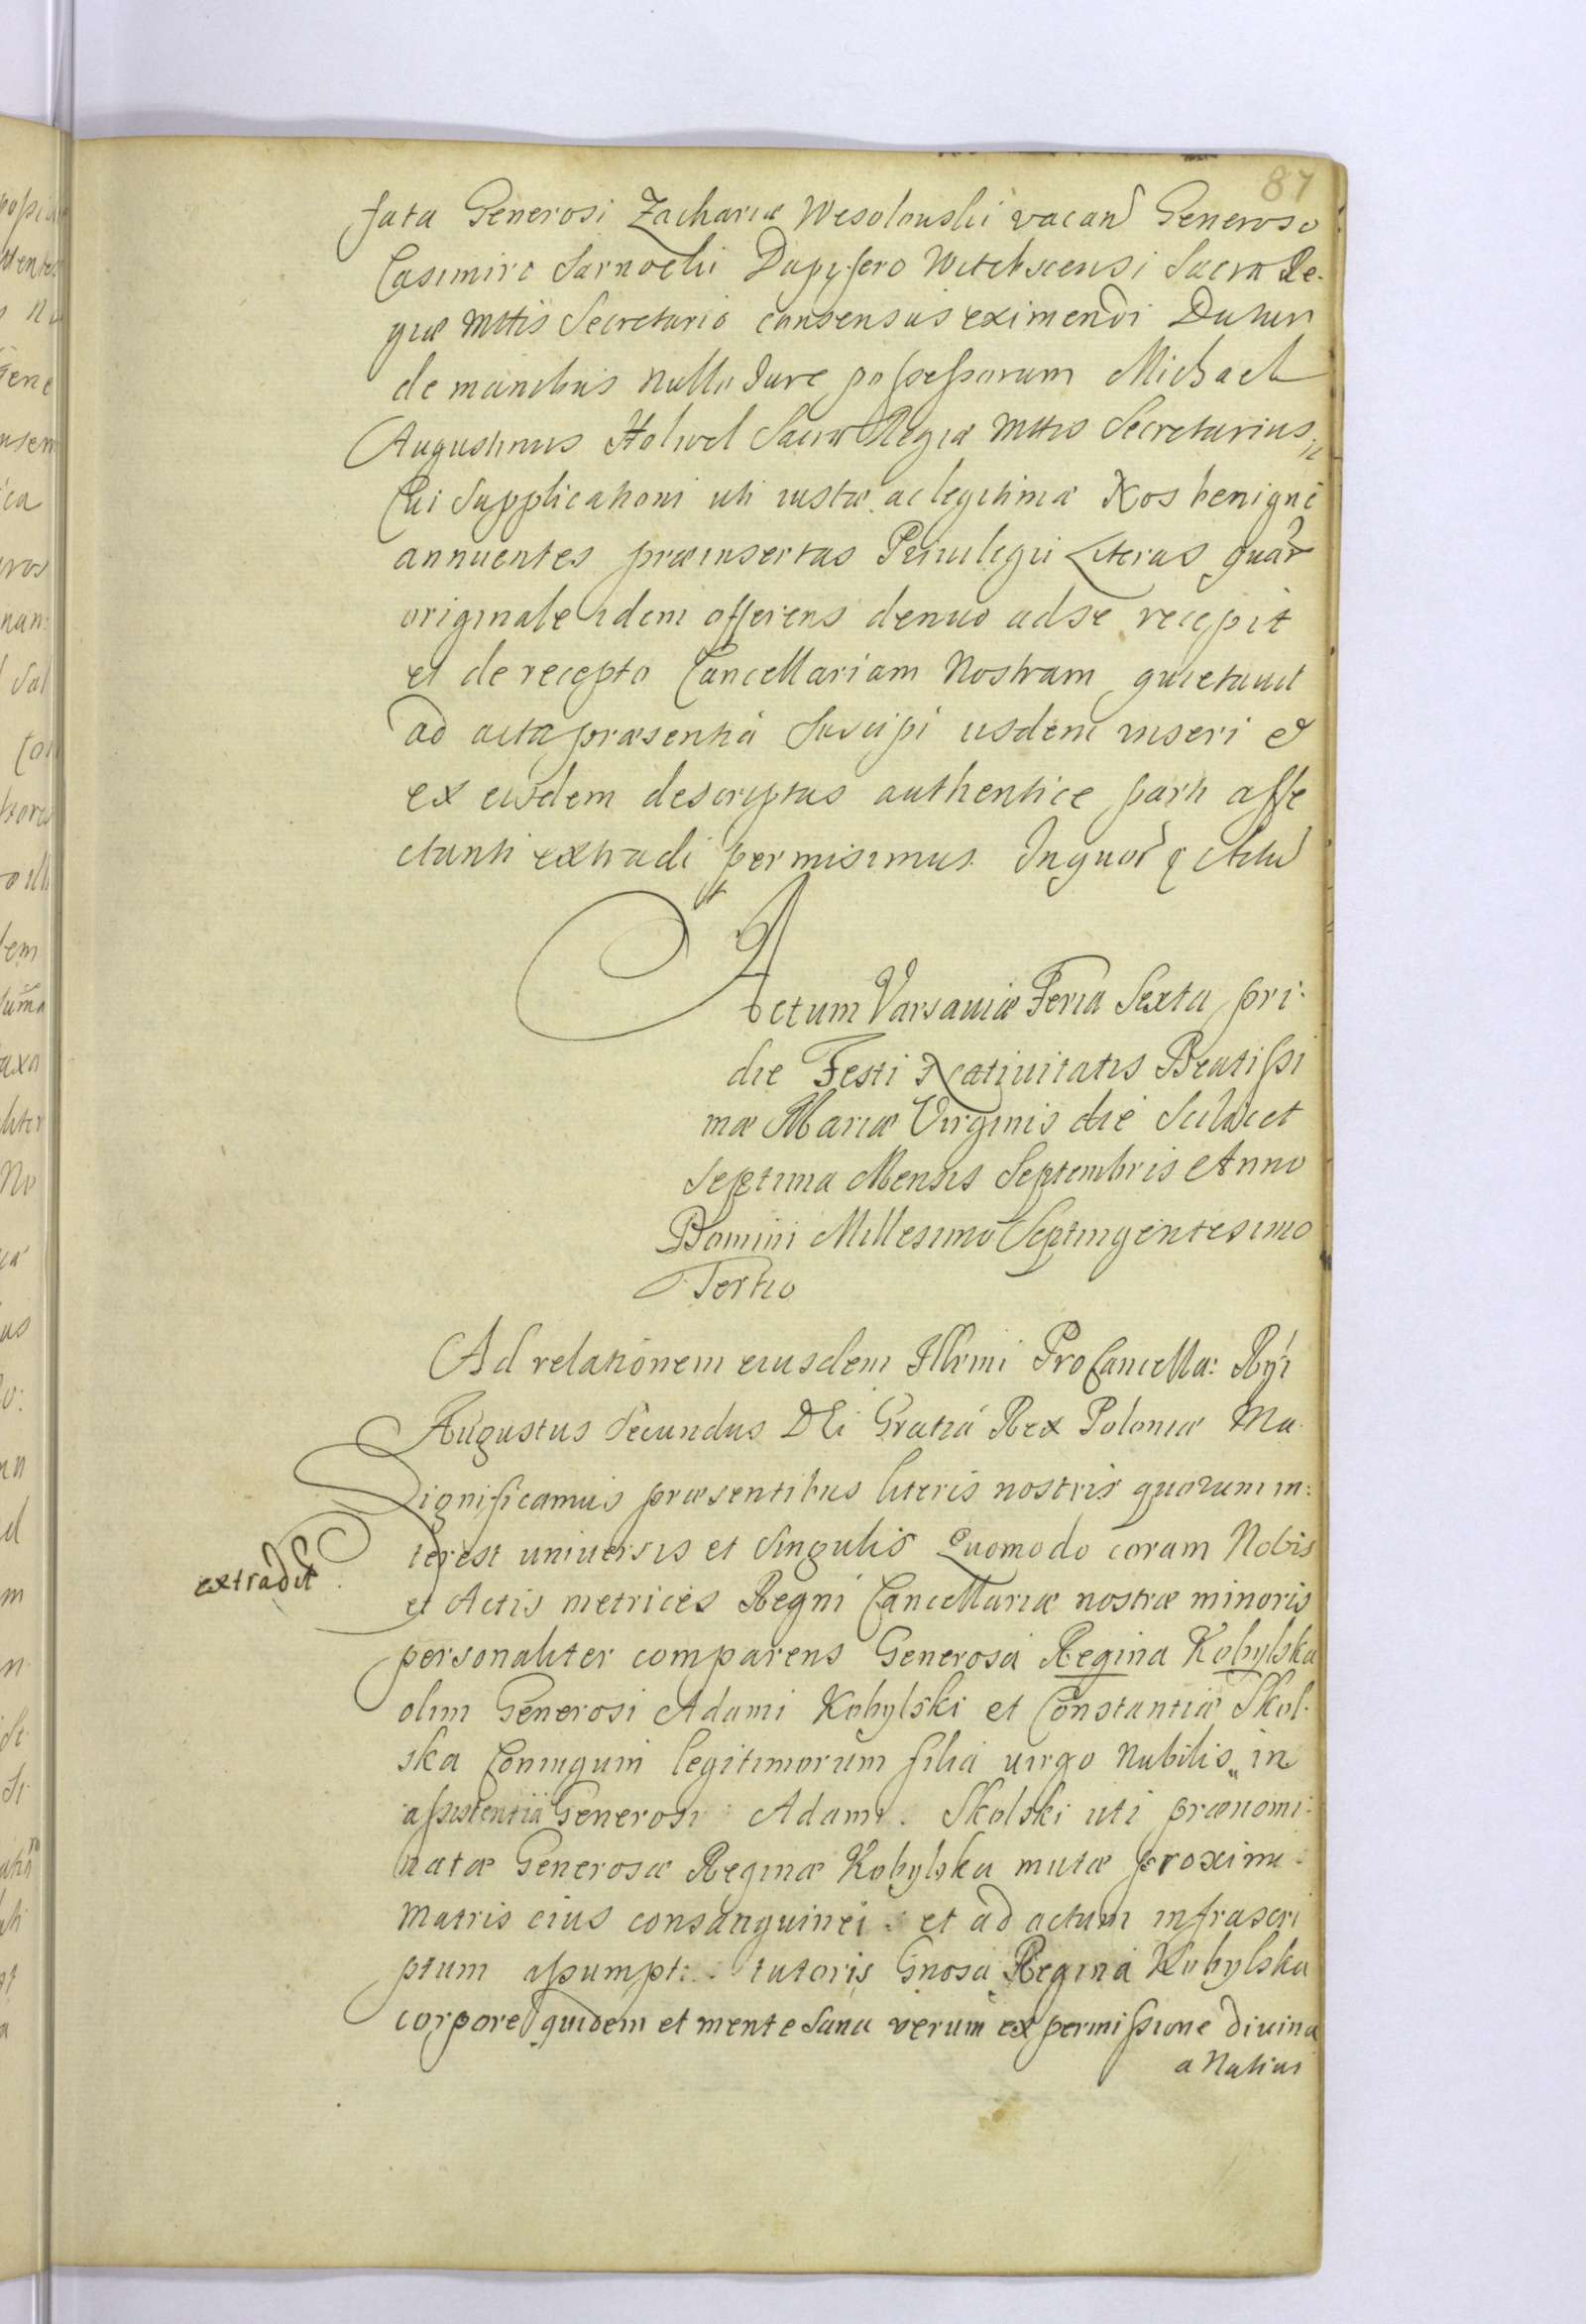 87
fata Generosi Zachariæ Wesolouski vacan Generoso
Casimiro Sarnocki Dapifero Witebscensi Sacræ Re-
giæ Mttis Secretario consensus eximendi Datur
de manibus nullo Jure possessorum Michael
Augustinus Holwel Sacræ Regiæ Mttis Secretarius
Cui Supplicationi uti iustæ ac legitimæ Nos benigne
annuentes præinsertas Priuilegii Literas quar
originale idem offerens denuo ad se recepit
et de recepto Cancellariam Nostram quietauit
ad acta præsentia Suscipi iisdem inseri &
ex eisdem descriptas authentice parti affe
ctanti extradi permisimus. In quor Actu
Actum Varsauiæ Feria Sexta pri-
die Festi Natiuitatis Beatissi
mæ Mariæ Virginis die Scilicet
Septima Mensis Septembris Anno
Domini Millesimo Septingentesimo
Tertio
Ad relationem eiusdem Illrmi ProCancella: Rgi
Augustus Secundus DEi Gratia Rex Poloniæ Ma.
Significamus præsentibus literis nostris quorum in:
terest uniuersis et Singulis Quomodo coram Nobis
extradit
et Actis metrices Regni Cancellariæ nostræ minoris
personaliter comparens Generosa Regina Kobylska
olim Generosi Adami Kobylski et Constantiæ Skol-
ska Coniugum legitimorum filia uirgo Nubilis in
assistentia Generosi Adami Skolski uti prænomi:
natæ Generosæ Reginæ Kobylska mutæ proximi
Matris eius consanguinei et ad actum infrascri
ptum assumpti tutoris Gnosa Regina Kobylska
corpore quidem et mente Sana verum ex permissione diuina
a Natiui